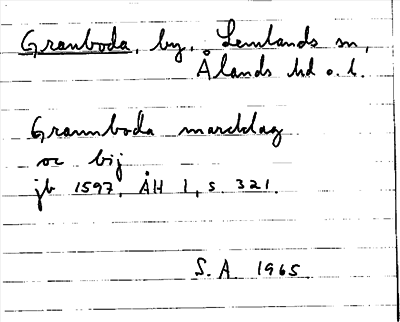 Granboda, by, Lemlands sn,
Ålands hd o. l.
Grannboda marcklag
oc bij
jb 1597, ÅH 1, s. 321.
S. A 1965